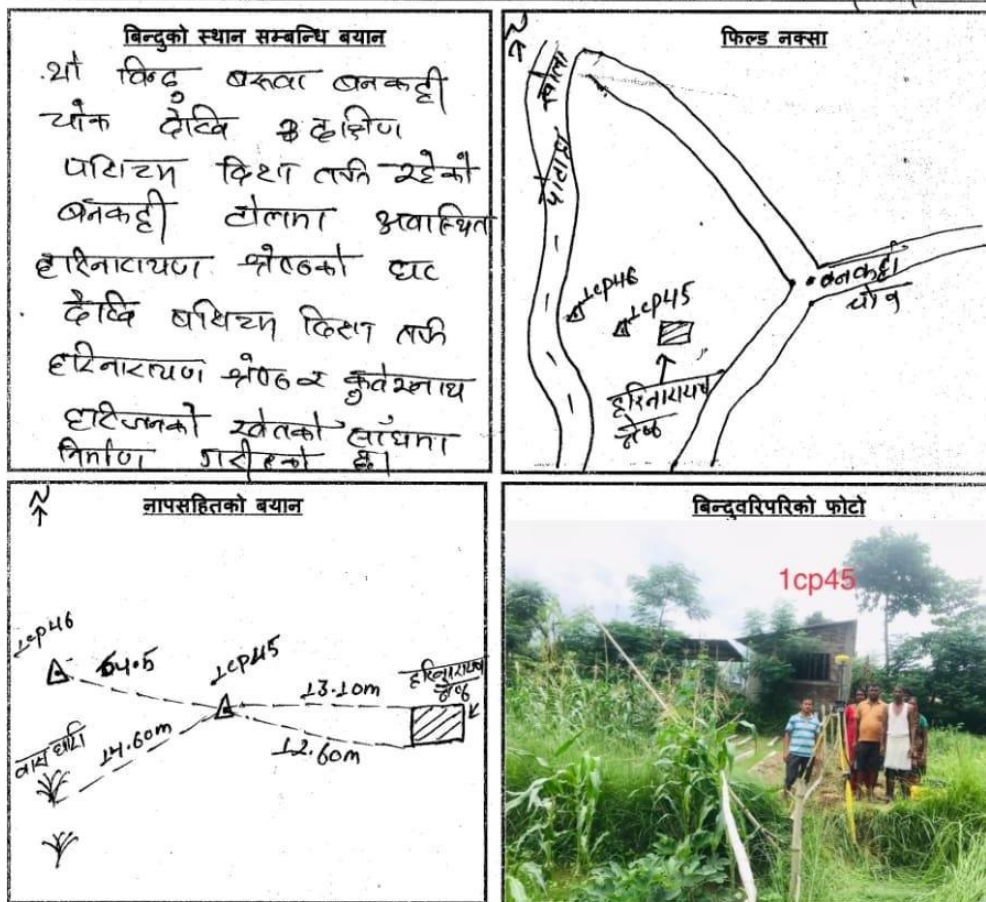 बिन्दुको स्थान सम्बन्धि बयान
यो विन्दु बरुवा बनकट्टी
चोक देखि दक्षिण
पश्चिम दिशा तर्फ रहेको
बनकट्टी टोलमा अवास्थित
हरिनारायण श्रेष्ठको घर
देखि पश्चिम दिशा तर्फ
हरिनारायण श्रेष्ठ र
हरिजनको खेतको साँधमा
निर्माण गरीएको छ।
फिल्ड नक्सा
N
खोला
1cp46
1cp45
बनकट्टी
चोक
हरिनारायण
श्रेष्ठ
नापसहितको बयान
N
1cp46
64.5
1cp45
13.10m
हरिनारायण
श्रेष्ठ
14.60m
12.60m
बिन्दुवरिपरिको फोटो
1cp45